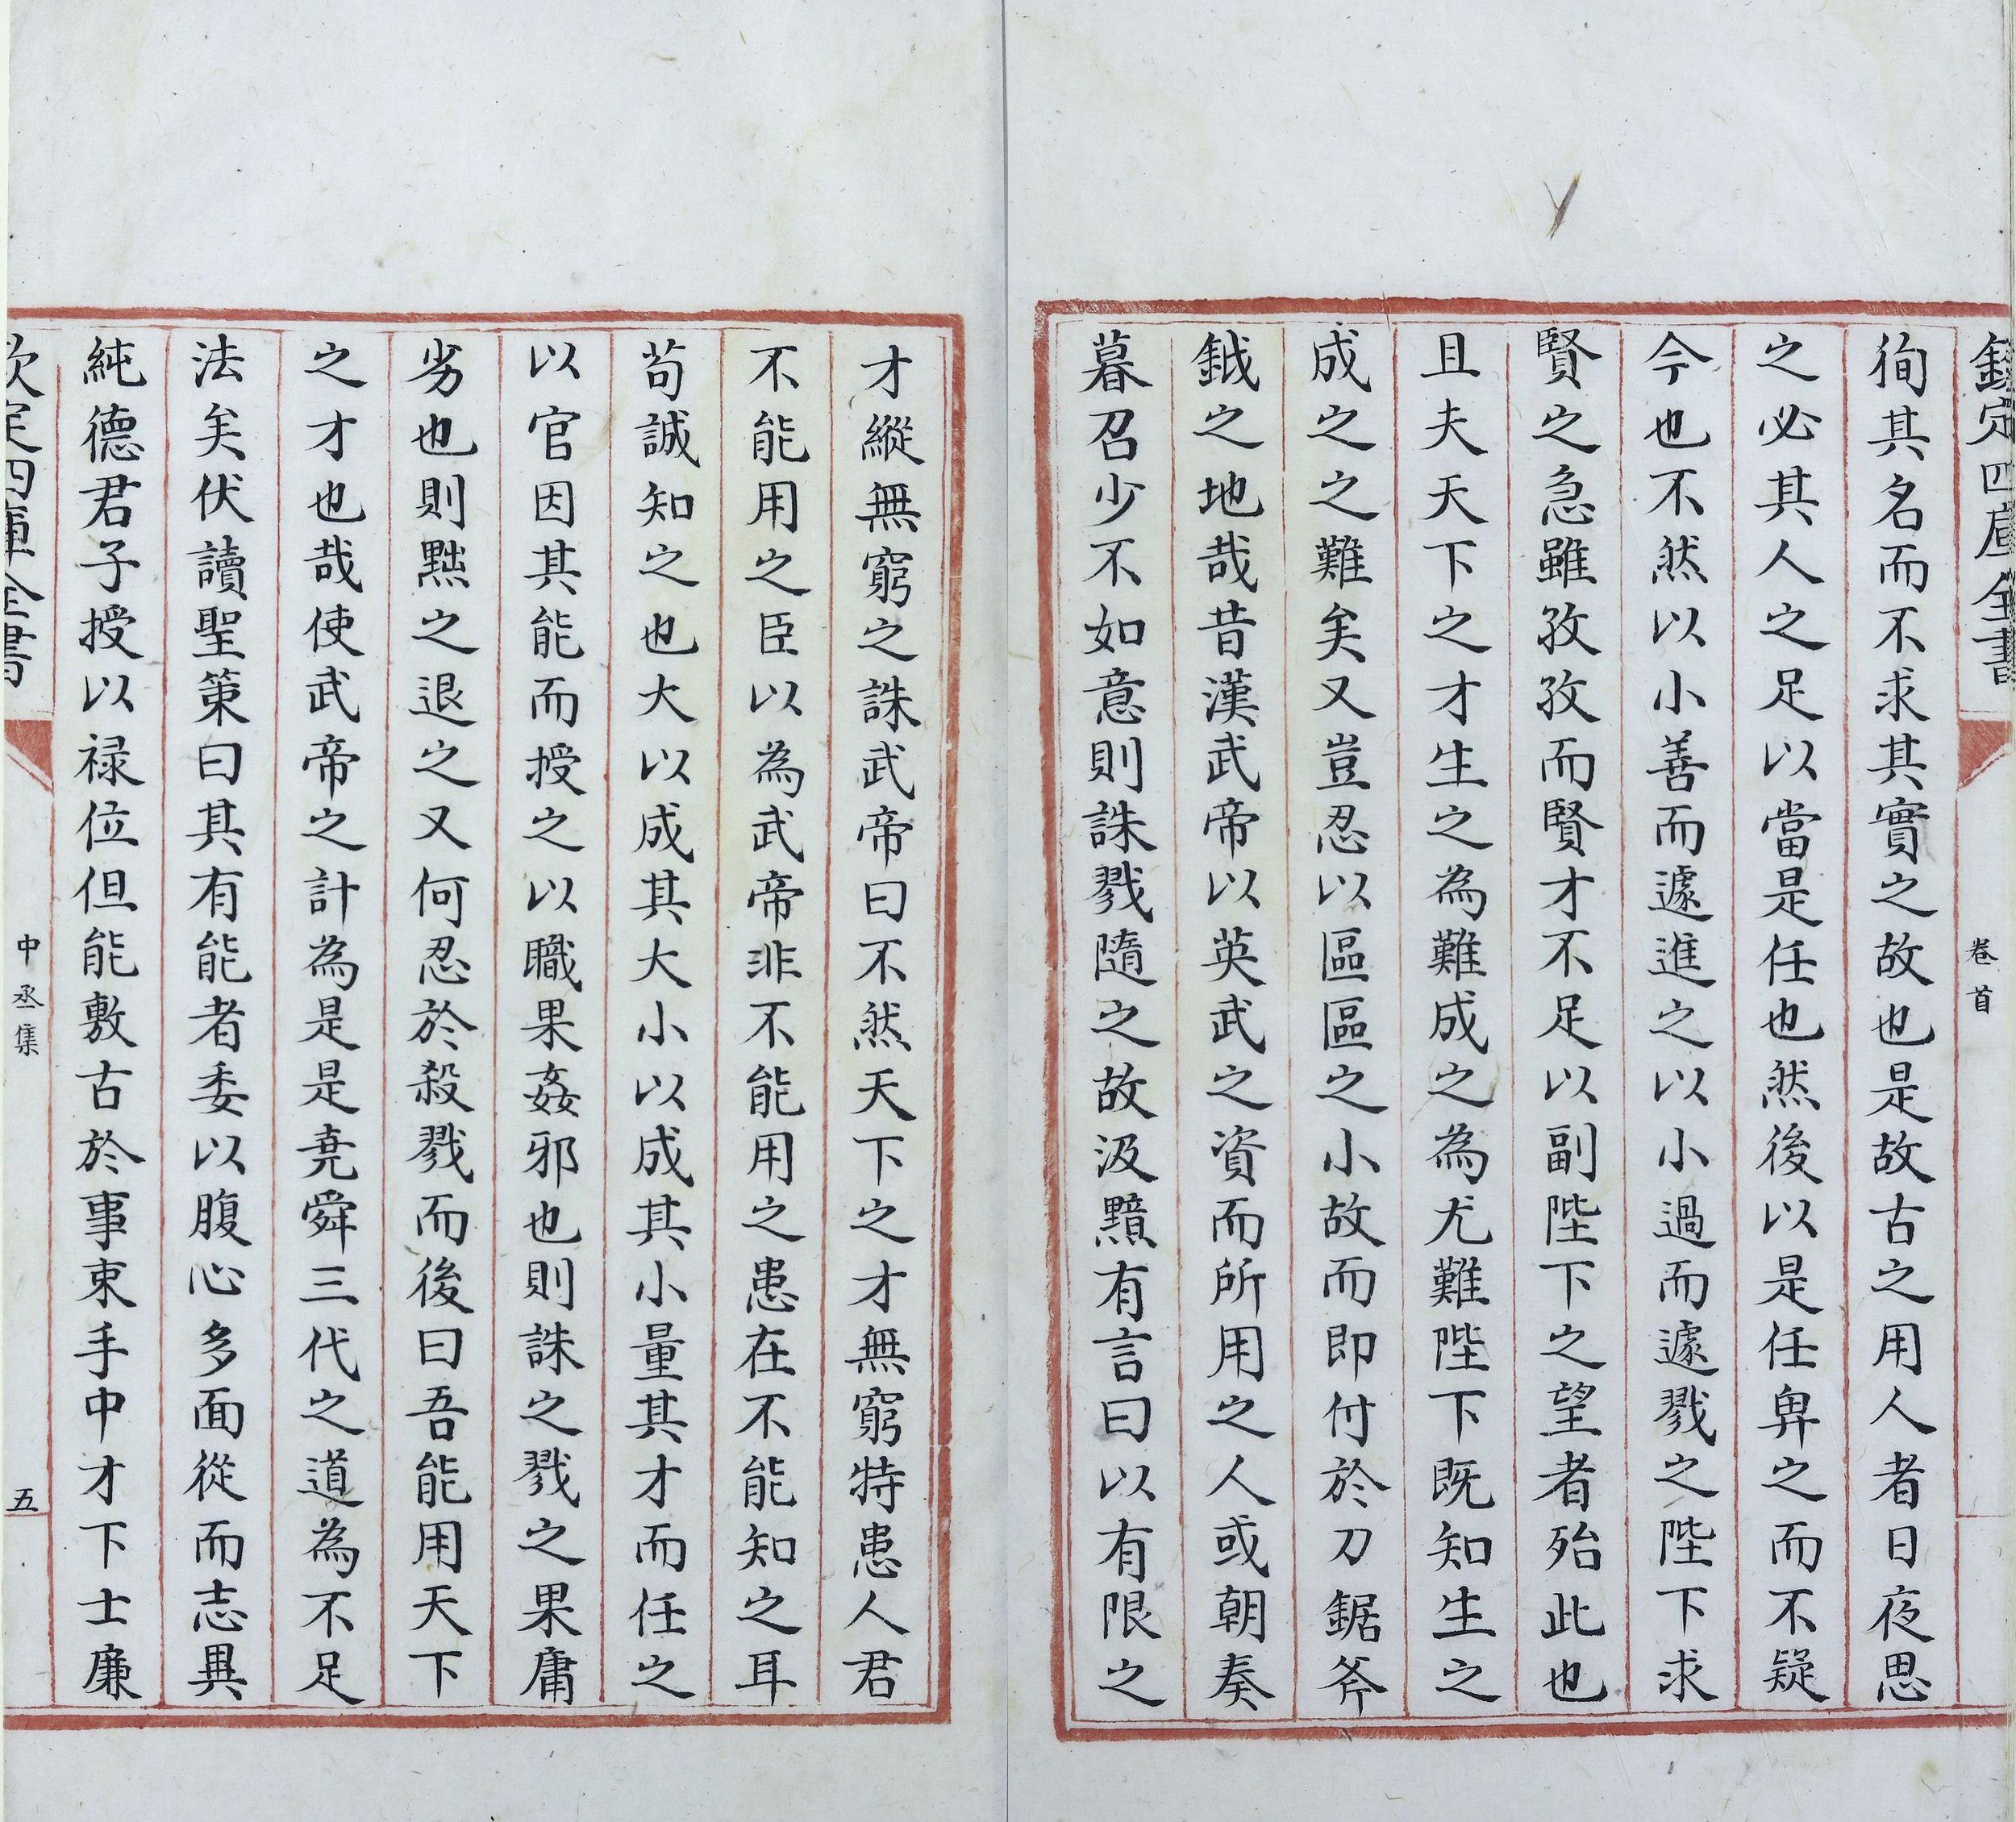 欽定四庫全書
卷首
徇其名而不求其實之故也是故古之用人者日夜思
之必其人之足以當是任也然後以是任畀之而不疑
今也不然以小善而遽進之以小過而遽戮之陛下求
賢之急雖孜孜而賢才不足以副陛下之望者殆此也
且夫天下之才生之為難成之為尤難陛下既知生之
成之之難矣又豈忍以區區之小故而即付於刀鋸斧
鉞之地哉昔漢武帝以英武之資而所用之人或朝奏
暮召少不如意則誅戮隨之故汲黯有言曰以有限之
才縱無窮之誅武帝曰不然天下之才無窮特患人君
不能用之臣以為武帝非不能用之患在不能知之耳
苟誠知之也大以成其大小以成其小量其才而任之
以官因其能而授之以職果姦邪也則誅之戮之果庸
劣也則黜之退之又何忍於殺戮而後曰吾能用天下
之才也哉使武帝之計為是是堯舜三代之道為不足
法矣伏讀聖策曰其有能者委以腹心多面從而志異
純德君子授以禄位但能敷古於事束手中才下士廉
欽定四庫全書
中丞集
五